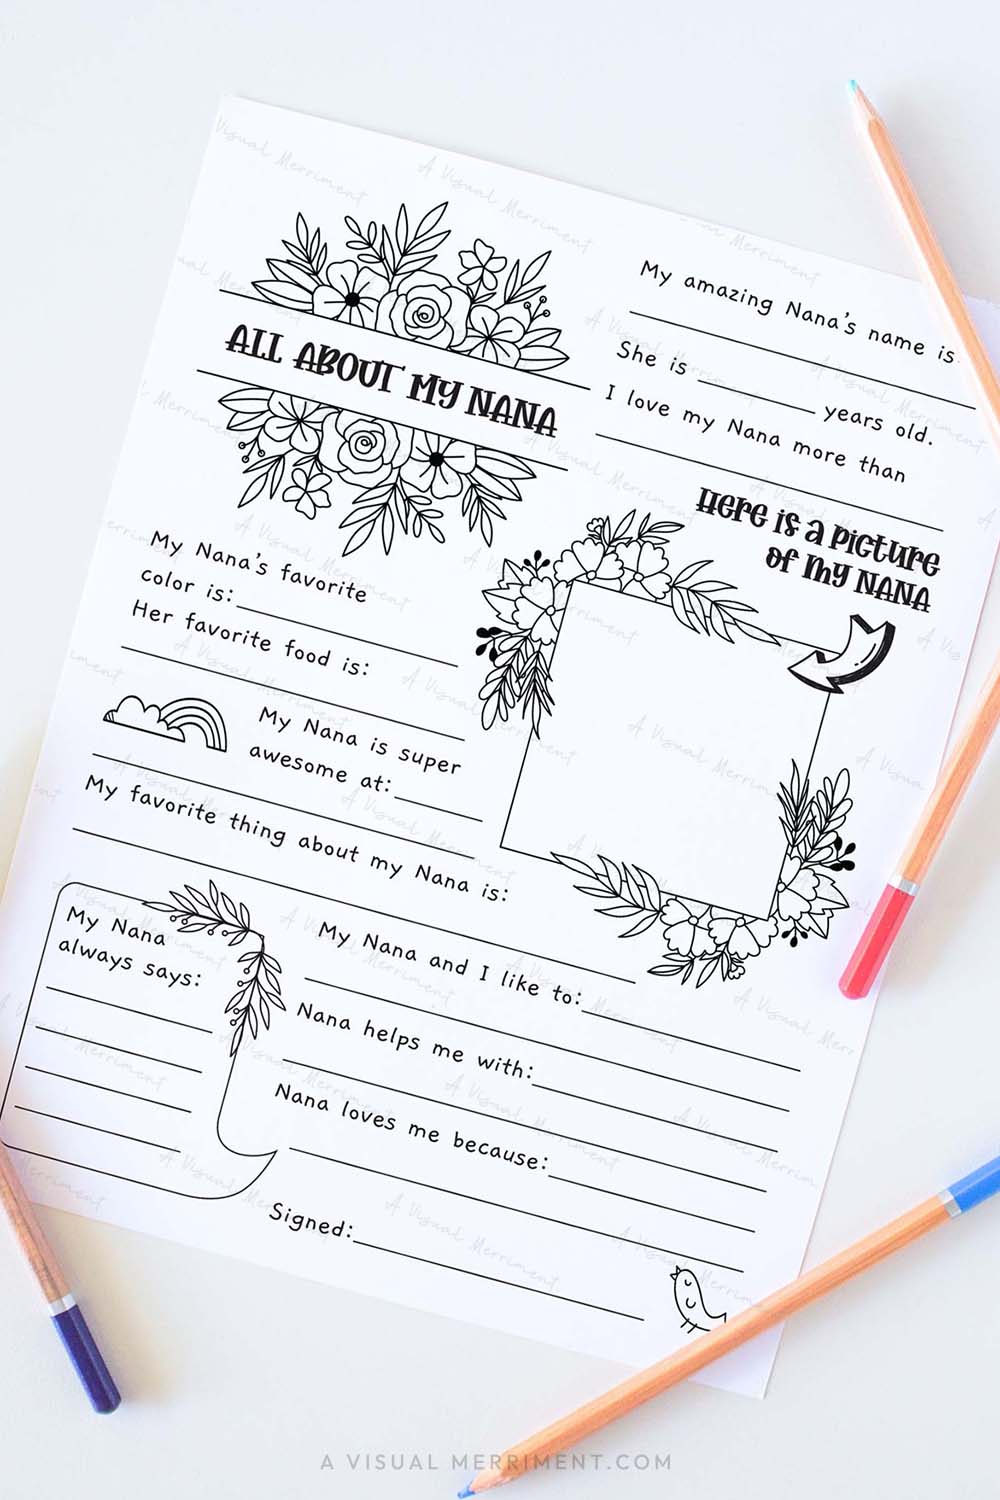 ALL ABOUT MY NANA
My amazing Nana's name is
She is
years old.
I love my Nana more than
Here is a picture
of my NANA
My Nana's favorite
color is:
Her favorite food is:
My Nana is super
awesome at:
My favorite thing about my Nana is:
My Nana
always says:
My Nana and I like to:
Nana helps me with:
Nana loves me because:
Signed:
A Visual Merriment
A VISUAL MERRIMENT.COM